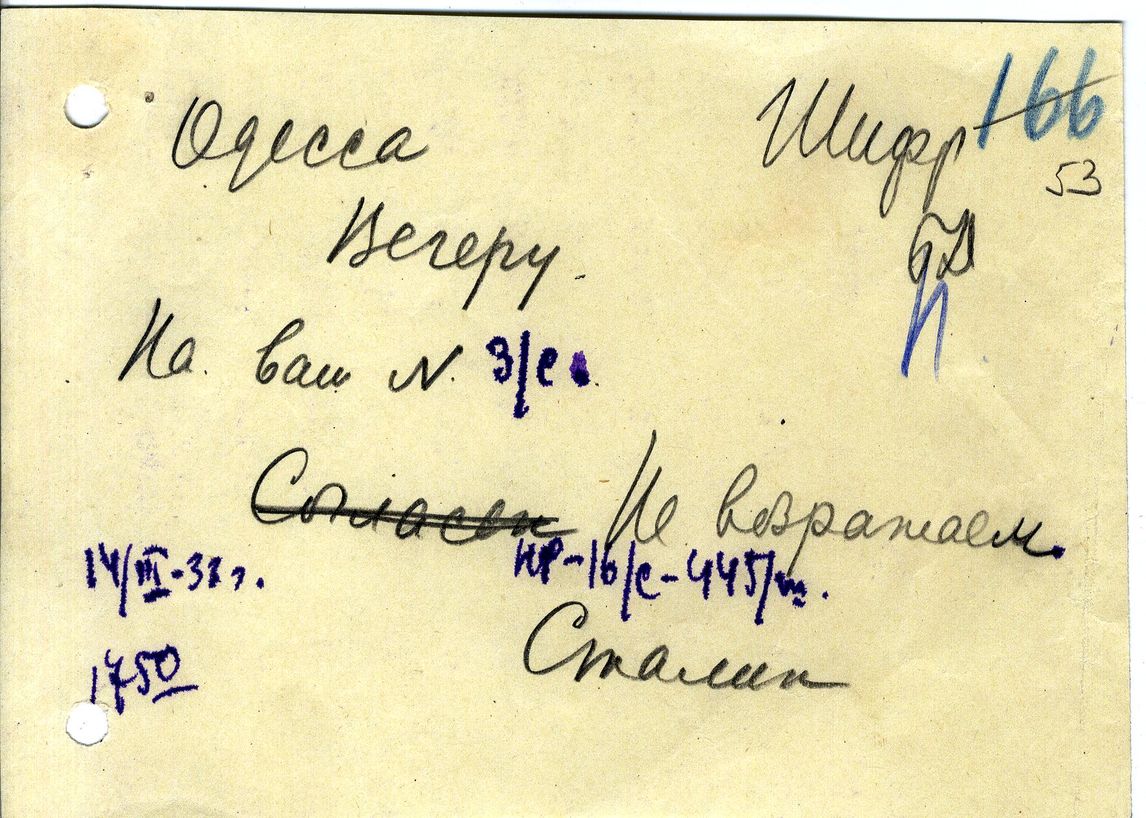 Одесса Шифр 166
53
Вегеру.
На ваш N. 3/с.
Согласен Не возражаем.
14/III-38 г. НР-16/с-445/ш.
Сталин
17 50